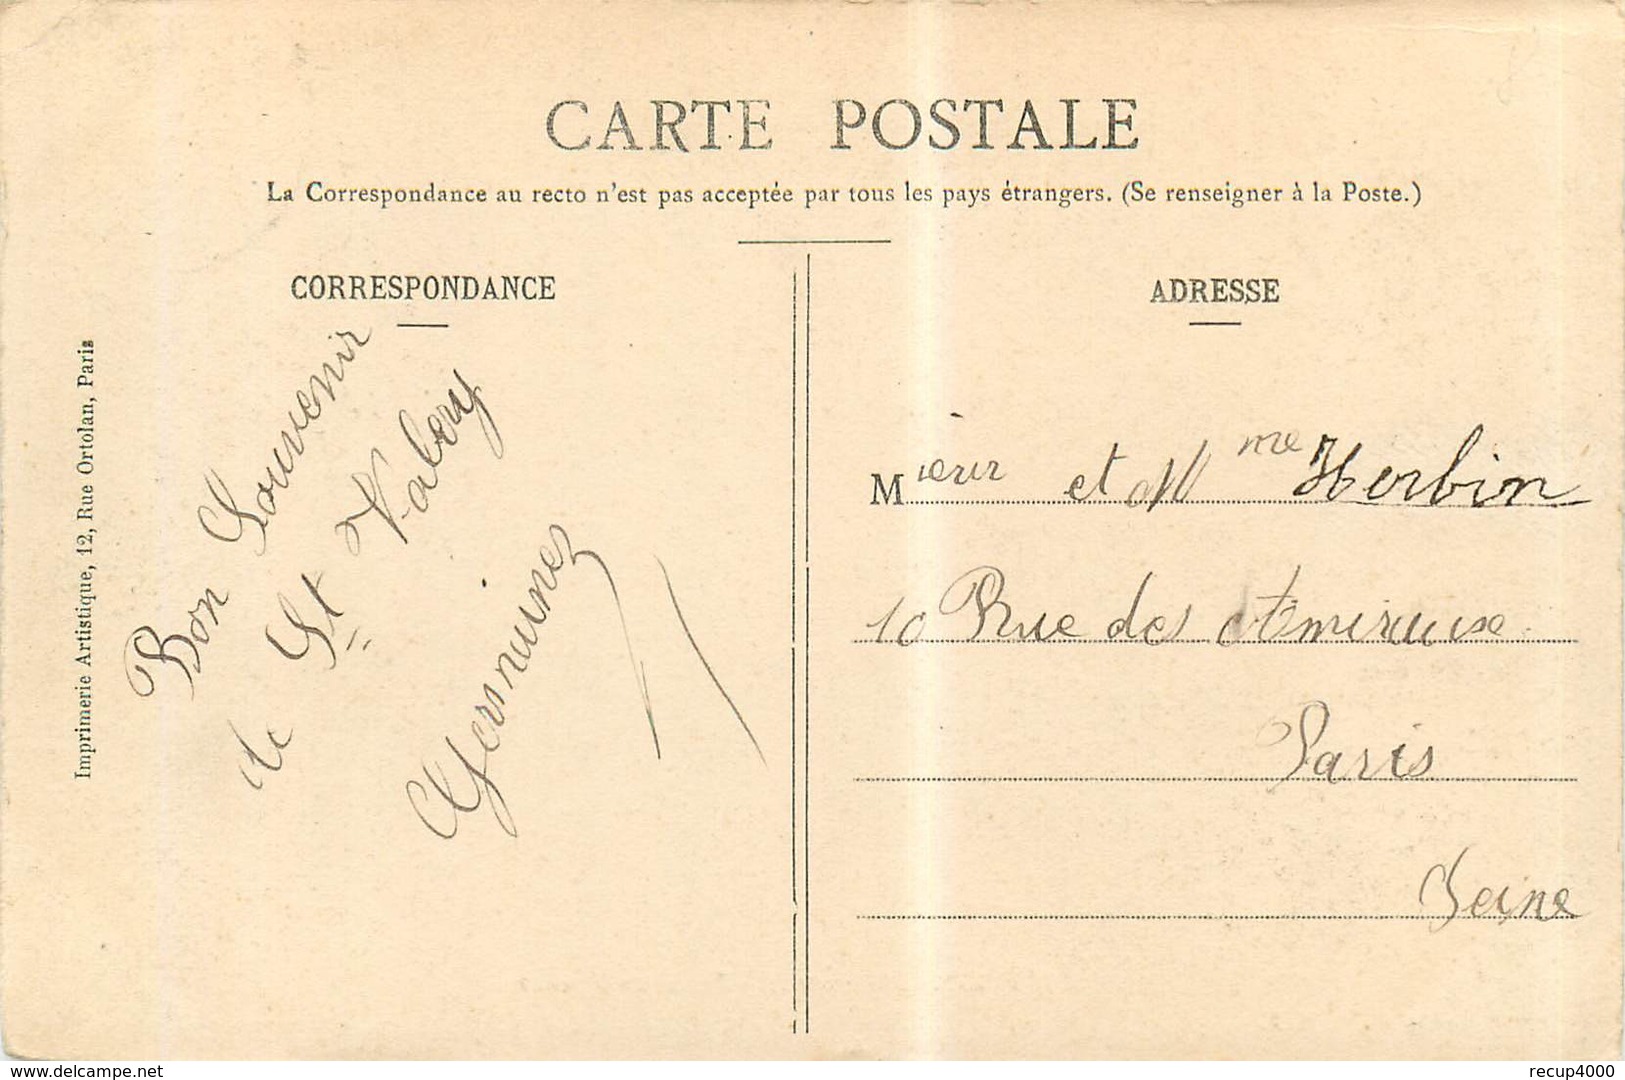 CARTE POSTALE
La Correspondance au recto n'est pas acceptée par tous les pays étrangers. (Se renseigner à la Poste.)
CORRESPONDANCE
Bon Souvenir
de St Valery
Imprimerie Artistique, 12, Rue Ortolan, Paris
ADRESSE
Mieur et Mme Herbin
10 Rue des
Paris
Seine
www.delcampe.net
recup4000